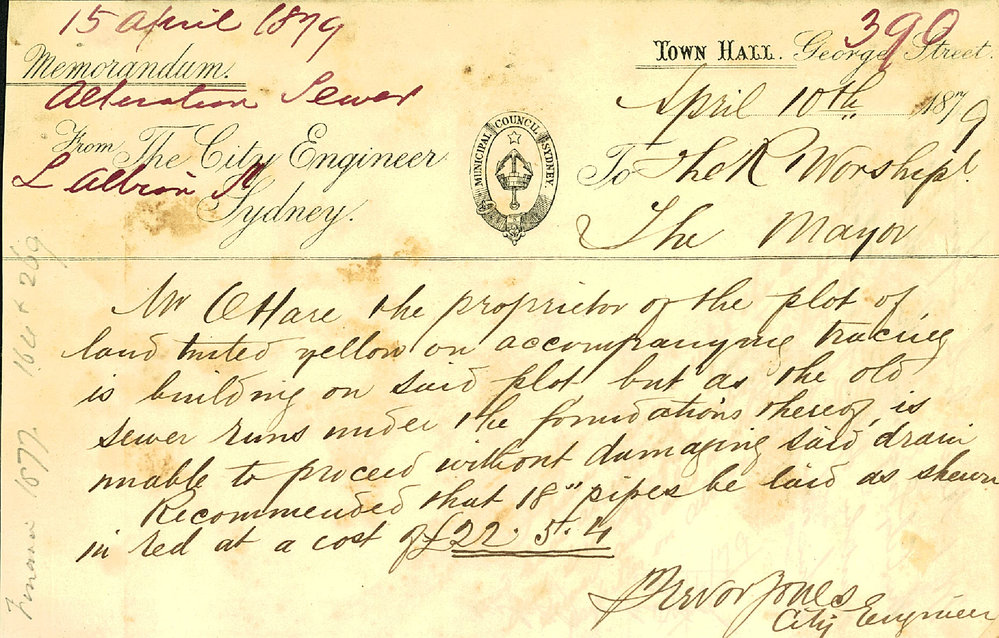 15 April 1879
390
Memorandum.
TOWN HALL. George Street.
Alteration Sewer
April 10th 1879
From The City Engineer
L Albion St
Sydney.
MUNICIPAL COUNCIL SYDNEY.
To The R Worshipl.
The Mayor
Mr O'Hare the proprietor of the plot of
land tinted yellow on accompanying tracing
is building on said plot but as the old
sewer runs under the foundations thereof, is
unable to proceed without damaging said drain
Recommended that 18" pipes be laid as shewn
in red at a cost of £22. 5. 4
Trevor Jones
City Engineer
1877. 164 + 269